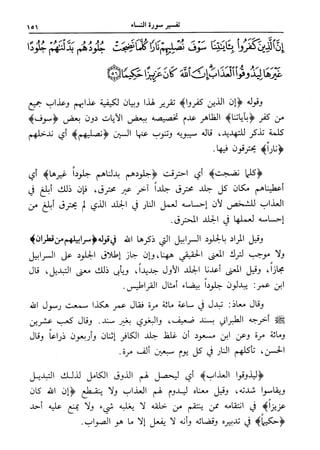 تفسير سورة النساء ١٥١
إِنَّ ٱلَّذِينَ كَفَرُوا۟ بِـَٔايَٰتِنَا سَوْفَ نُصْلِيهِمْ نَارًا كُلَّمَا نَضِجَتْ جُلُودُهُم بَدَّلْنَٰهُمْ جُلُودًا
غَيْرَهَا لِيَذُوقُوا۟ ٱلْعَذَابَ إِنَّ ٱللَّهَ كَانَ عَزِيزًا حَكِيمًا ۝٥٦
وقوله ﴿إن الذين كفروا﴾ تقرير لهذا وبيان لكيفية عذابهم وعذاب جميع
من كفر ﴿بآياتنا﴾ الظاهر عدم تخصيصه ببعض الآيات دون بعض ﴿سوف﴾
كلمة تذكر للتهديد، قاله سيبويه وتنوب عنها السين ﴿نصليهم﴾ أي ندخلهم
﴿ناراً﴾ يحترقون فيها.
﴿كلما نضجت﴾ أي احترقت ﴿جلودهم بدلناهم جلوداً غيرها﴾ أي
أعطيناهم مكان كل جلد محترق جلداً آخر غير محترق، فإن ذلك أبلغ في
العذاب للشخص لأن إحساسه لعمل النار في الجلد الذي لم يحترق أبلغ من
إحساسه لعملها في الجلد المحترق.
وقيل المراد بالجلود السرابيل التي ذكرها الله في قوله ﴿سرابيلهم من قطران﴾
ولا موجب لترك المعنى الحقيقي ههنا، وإن جاز إطلاق الجلود على السرابيل
مجازاً، وقيل المعنى أعدنا الجلد الأول جديداً، ويأبى ذلك معنى التبديل، قال
ابن عمر: يبدلون جلوداً بيضاء أمثال القراطيس.
وقال معاذ: تبدل في ساعة مائة مرة فقال عمر هكذا سمعت رسول الله
ﷺ أخرجه الطبراني بسند ضعيف، والبغوي بغير سند. وقال كعب عشرين
ومائة مرة وعن ابن مسعود أن غلظ جلد الكافر إثنان وأربعون ذراعاً وقال
الحسن، تأكلهم النار في كل يوم سبعين ألف مرة.
﴿ليذوقوا العذاب﴾ أي ليحصل لهم الذوق الكامل لذلك التبديل
ويقاسوا شدته، وقيل معناه ليدوم لهم العذاب ولا ينقطع ﴿إن الله كان
عزيزاً﴾ في انتقامه ممن ينتقم من خلقه لا يغلبه شيء ولا يمنع عليه أحد
﴿حكيماً﴾ في تدبيره وقضائه وأنه لا يفعل إلا ما هو الصواب.